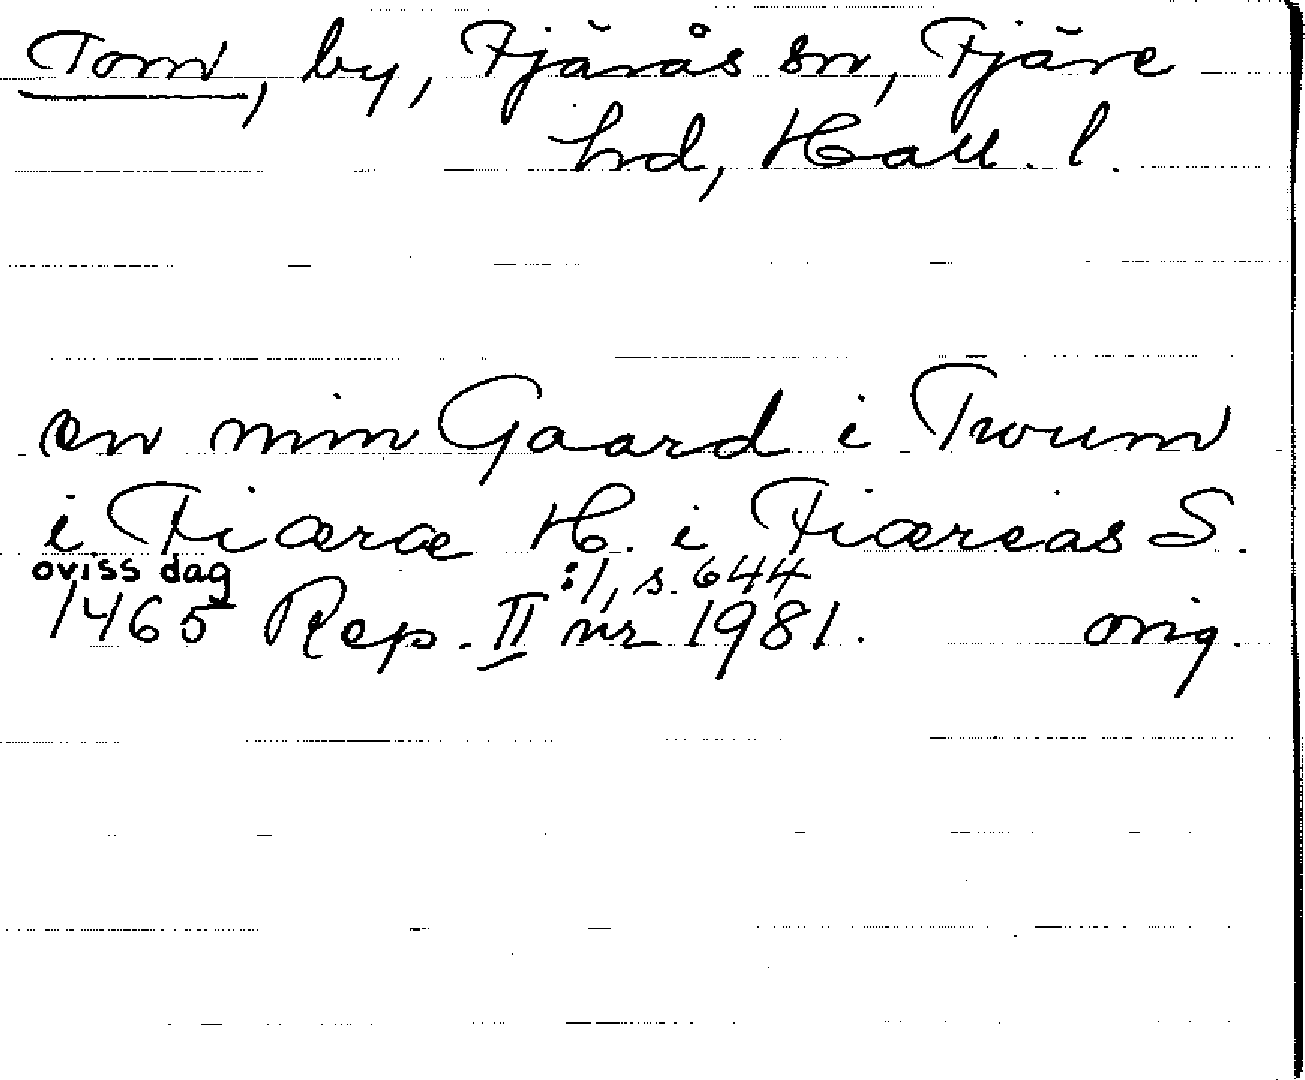 Tom, by, Fjärås sn, Fjäre
hd, Hall. l.
en min Gaard i Twum
i Fiæræ H. i Fiæreas S.
oviss dag :1, s. 644
1465 Rep. II nr 1981. orig.